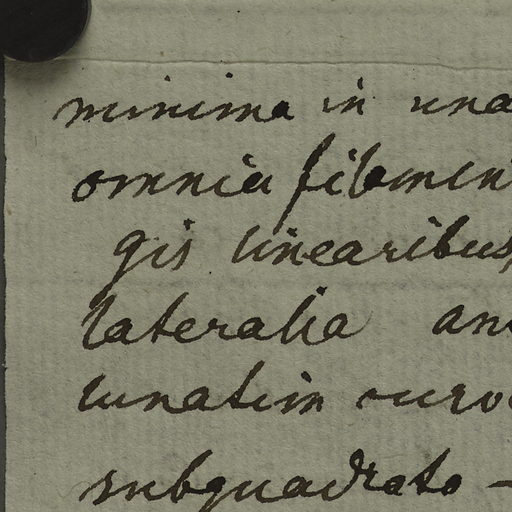 minima in una
omnia filamen
gis linearibus
lateralia an
lunatim curv
subquadrato -